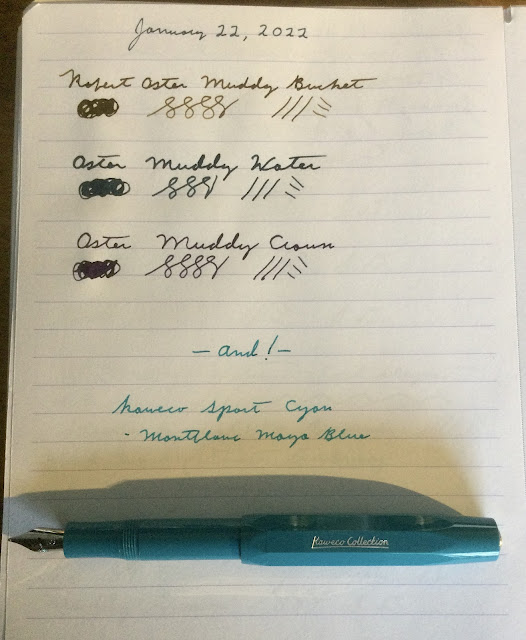 January 22, 2022
Robert Oster Muddy Bucket
Oster Muddy Water
Oster Muddy Crown
- and! -
Kaweco Sport Cyan
- Montblanc Maya Blue
Kaweco Collection